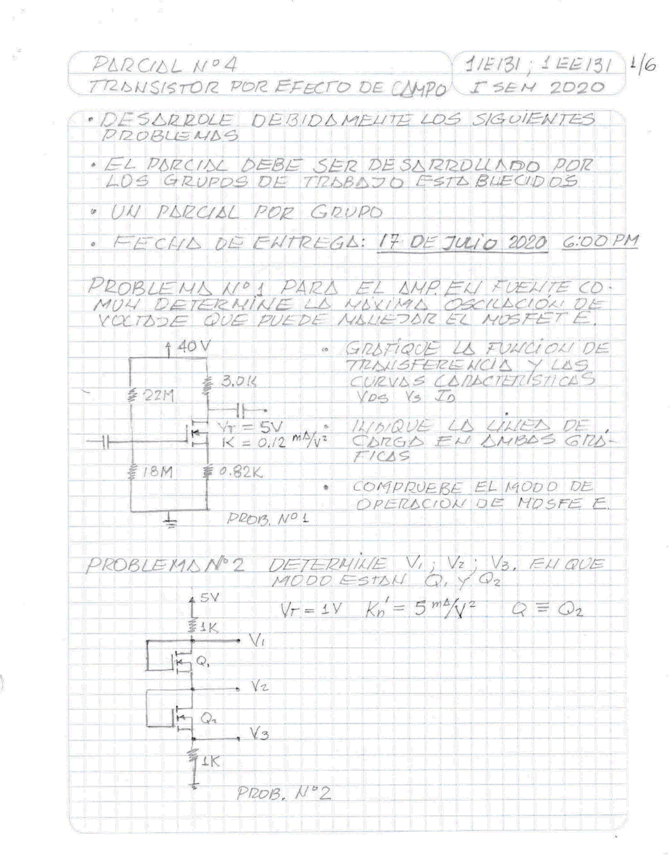 PARCIAL Nº 4
1IE131 ; 1EE131
1/6
TRANSISTOR POR EFECTO DE CAMPO
I SEM 2020
• DESARROLE DEBIDAMENTE LOS SIGUIENTES
PROBLEMAS
• EL PARCIAL DEBE SER DESARROLLADO POR
LOS GRUPOS DE TRABAJO ESTABLECIDOS
• UN PARCIAL POR GRUPO
• FECHA DE ENTREGA: 17 DE JULIO 2020 6:00 PM
PROBLEMA Nº 1 PARA EL AMP. EN FUENTE CO-
MUN DETERMINE LA MÁXIMA OSCILACIÓN DE
VOLTAJE QUE PUEDE MANEJAR EL MOSFET E.
40V
3.0K
22M
VT = 5V
K = 0.12 mA/V²
18M
0.82K
PROB. Nº 1
• GRAFIQUE LA FUNCION DE
TRANSFERENCIA Y LAS
CURVAS CARACTERÍSTICAS
VDS VS ID
• INDIQUE LA LINEA DE
CARGA EN AMBAS GRA-
FICAS
• COMPRUEBE EL MODO DE
OPERACION DE MOSFE E.
PROBLEMA Nº 2 DETERMINE V1 ; V2 ; V3. EN QUE
MODO ESTAN Q1 Y Q2
5V
VT = 1V Kn' = 5 mA/V² Q ≡ Q2
1K
V1
Q1
V2
Q2
V3
1K
PROB. Nº 2